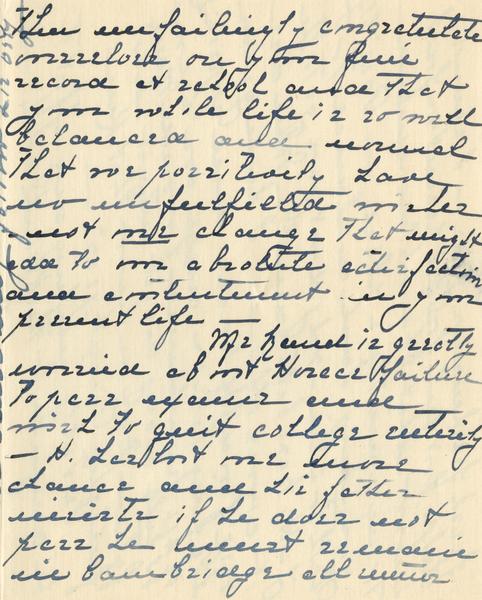 Then unfailingly congratulate
ourselves on your fine
record at school and that
your whole life is so well
balanced and normal
that we positively have
no unfulfilled wishes
— not one change that might
add to our absolute satisfaction
and contentment in your
present life —
Mr Rand is greatly
worried about Horace failure
to pass exams and
wish to quit college entirely
— H. has but one more
chance and his father
insists if he does not
pass he must remain
in Cambridge all summer